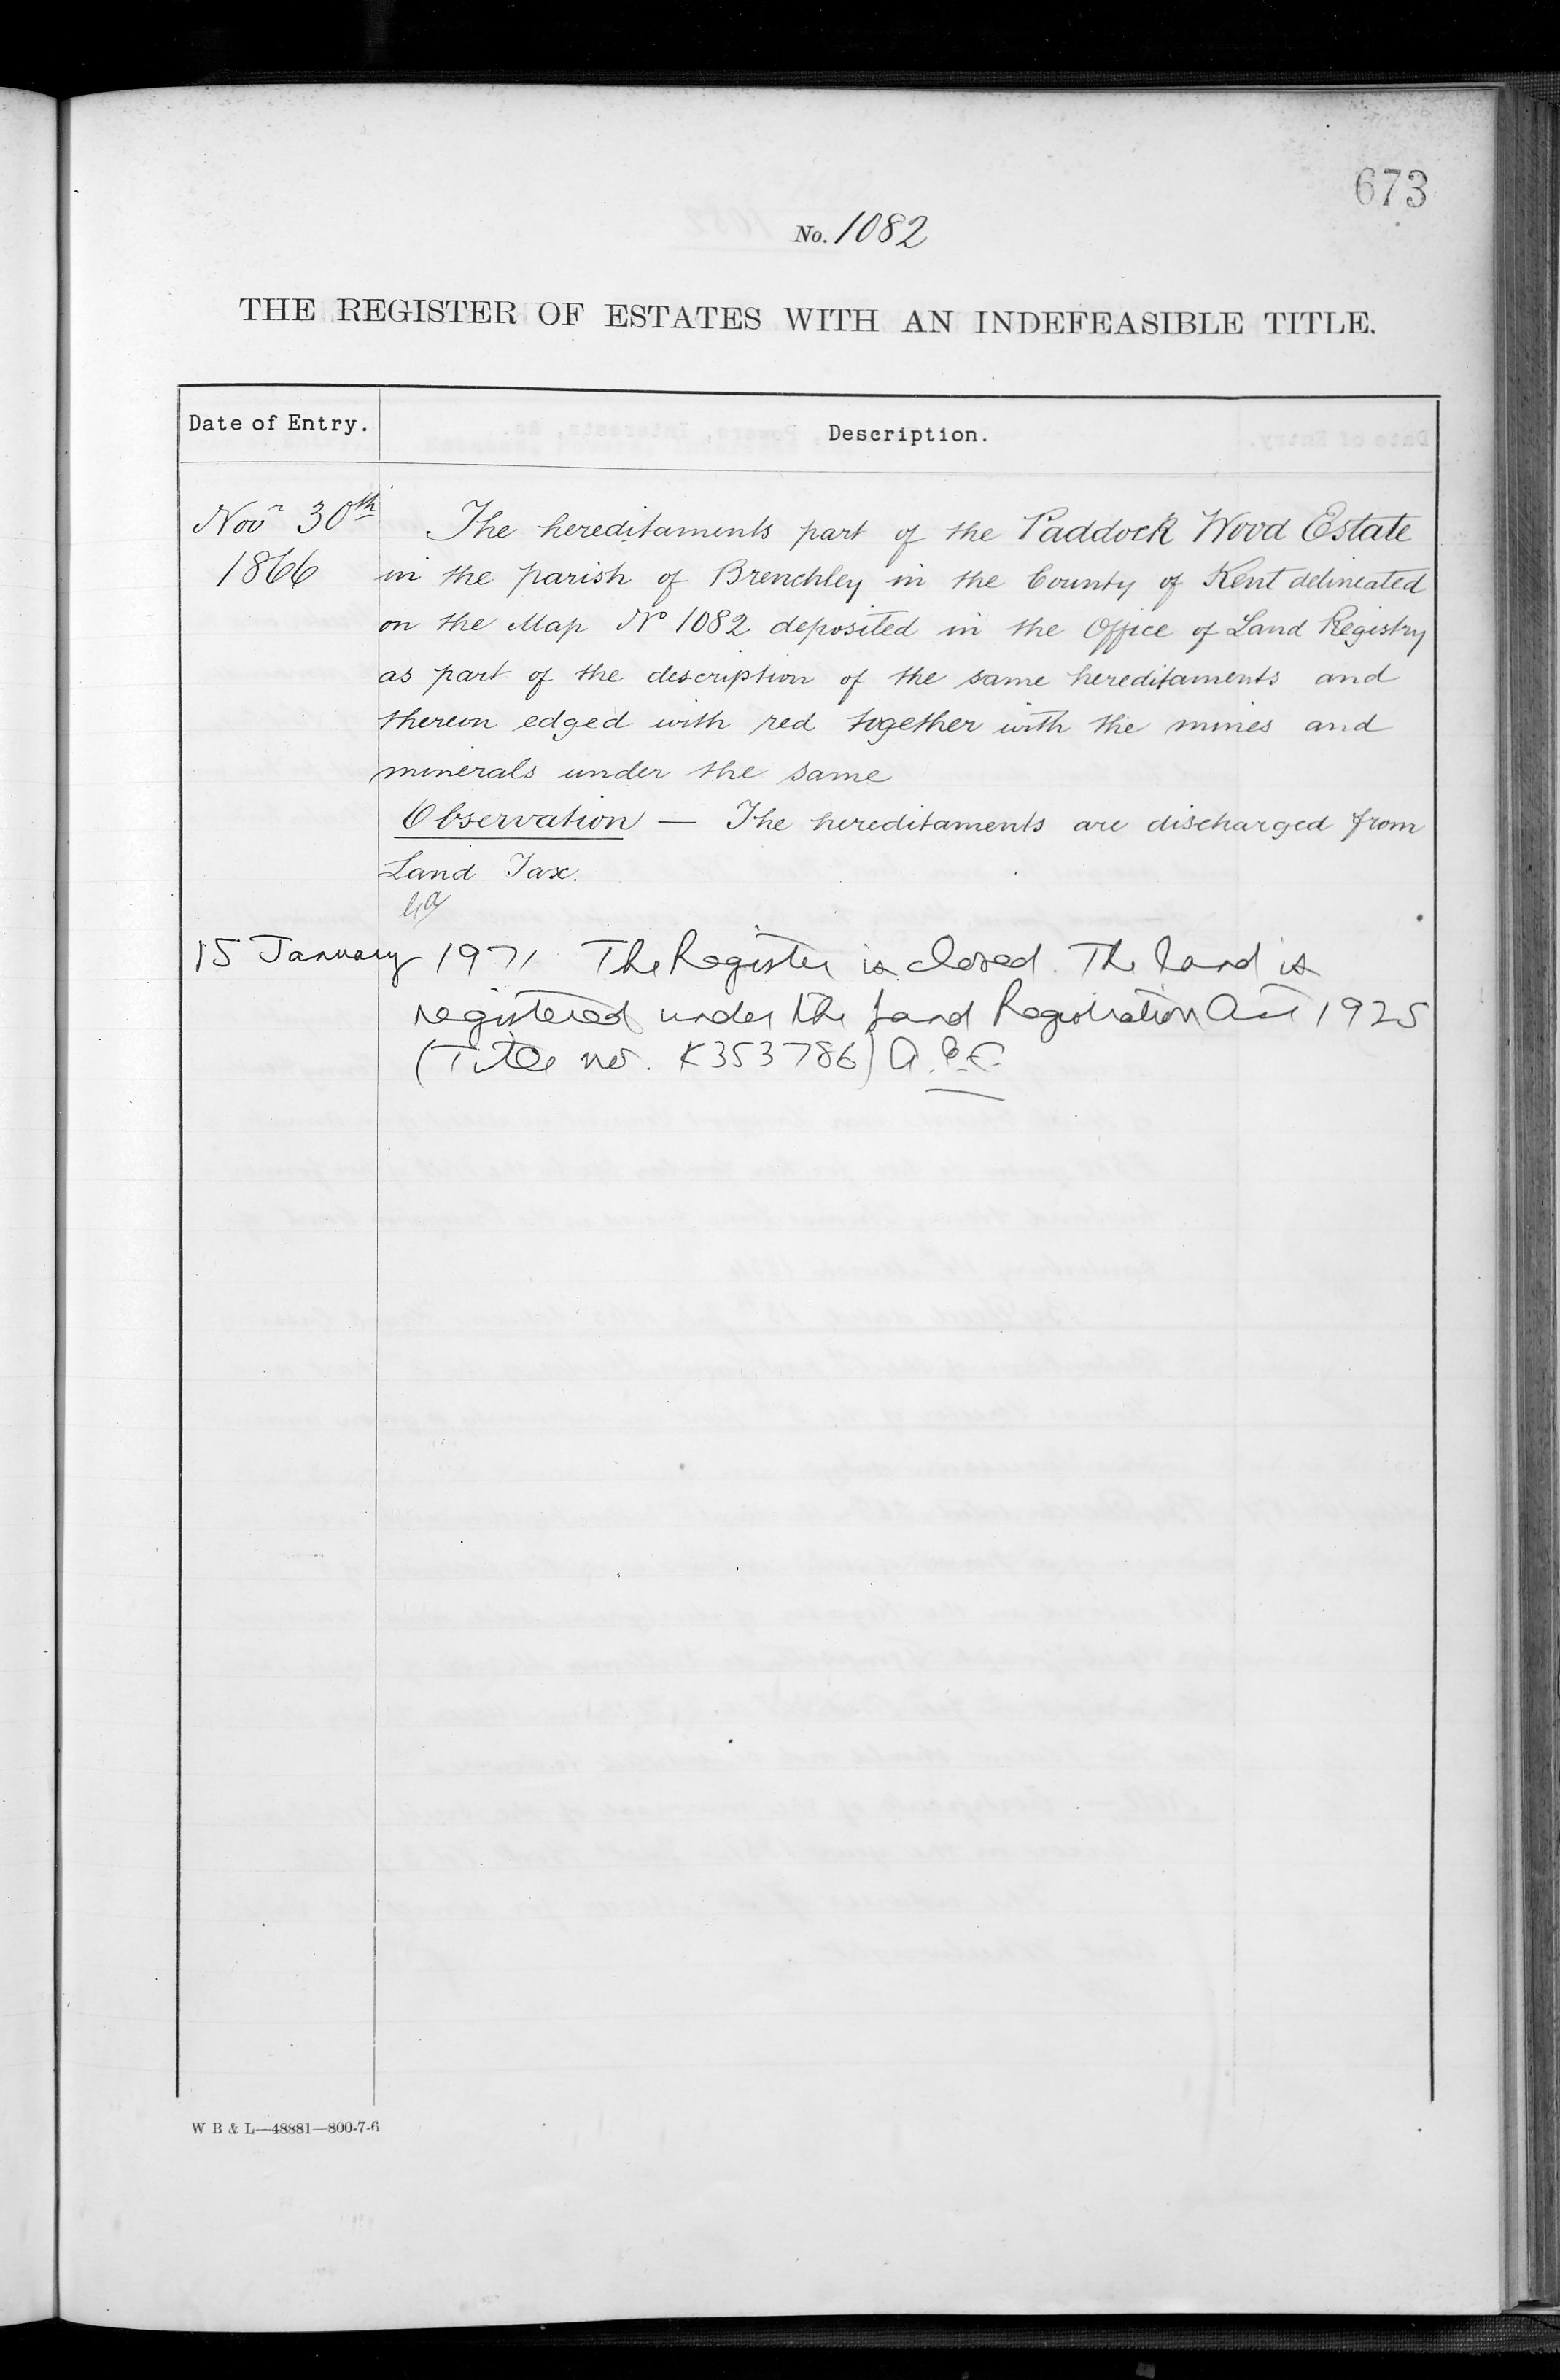 673
No. 1082
THE REGISTER OF ESTATES WITH AN INDEFEASIBLE TITLE.
Date of Entry.
Description.
Novr 30th
1866
The hereditaments part of the Paddock Wood Estate
in the parish of Brenchley in the County of Kent delineated
on the Map No 1082 deposited in the Office of Land Registry
as part of the description of the same hereditaments and
thereon edged with red together with the mines and
minerals under the same
Observation — The hereditaments are discharged from
Land Tax.
15 January 1971 The Register is closed. The land is
registered under the Land Registration Act 1925
(Title no. K353786)
W B & L—48881—800-7-6